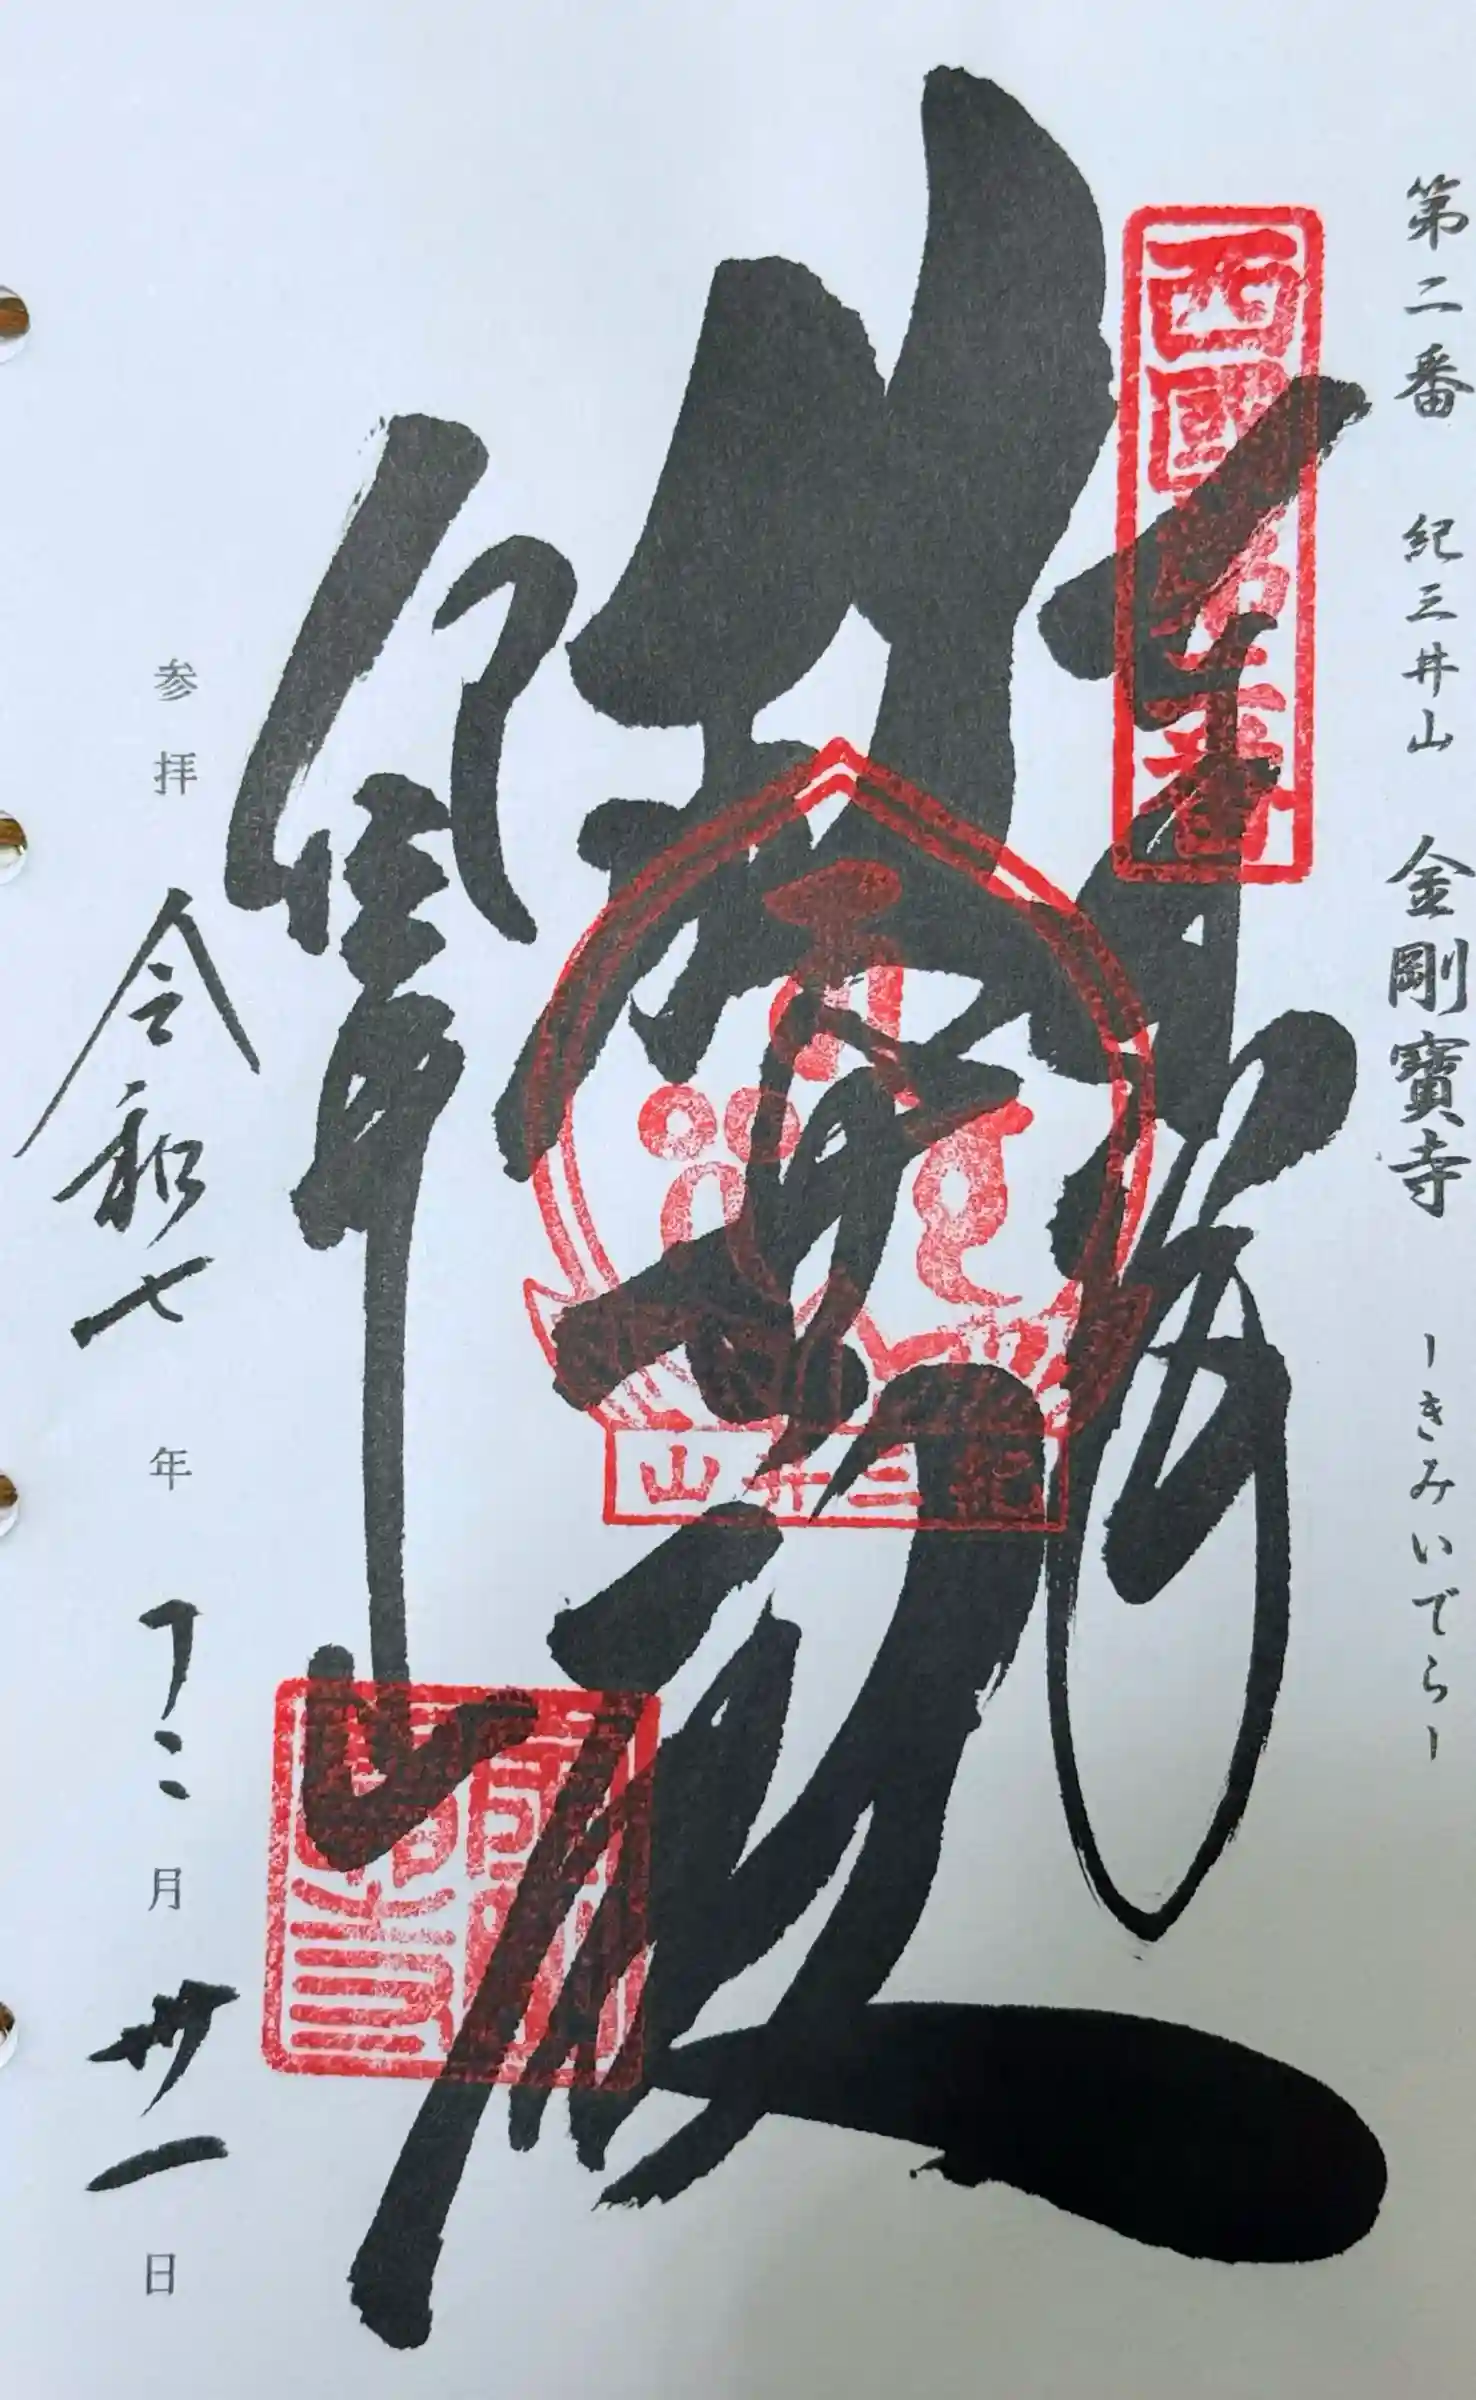 第二番 紀三井山 金剛寶寺 ーきみいでらー
西國第二番
奉拝
救世殿
紀三井山
紀三井寺
参拝 令和七年十二月卅一日